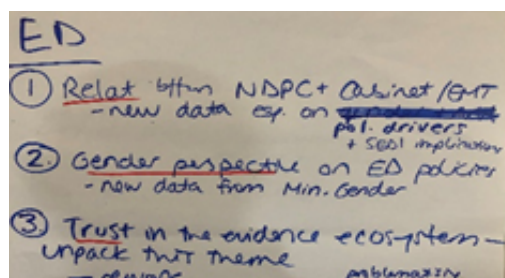 ED
① Relat btwn NDPC + Cabinet/EMT
- new data esp. on
pol. drivers
+ SEDI implications
②. Gender perspective on ED policies
- new data from Min. Gender
③ Trust in the evidence ecosystem -
unpack this theme